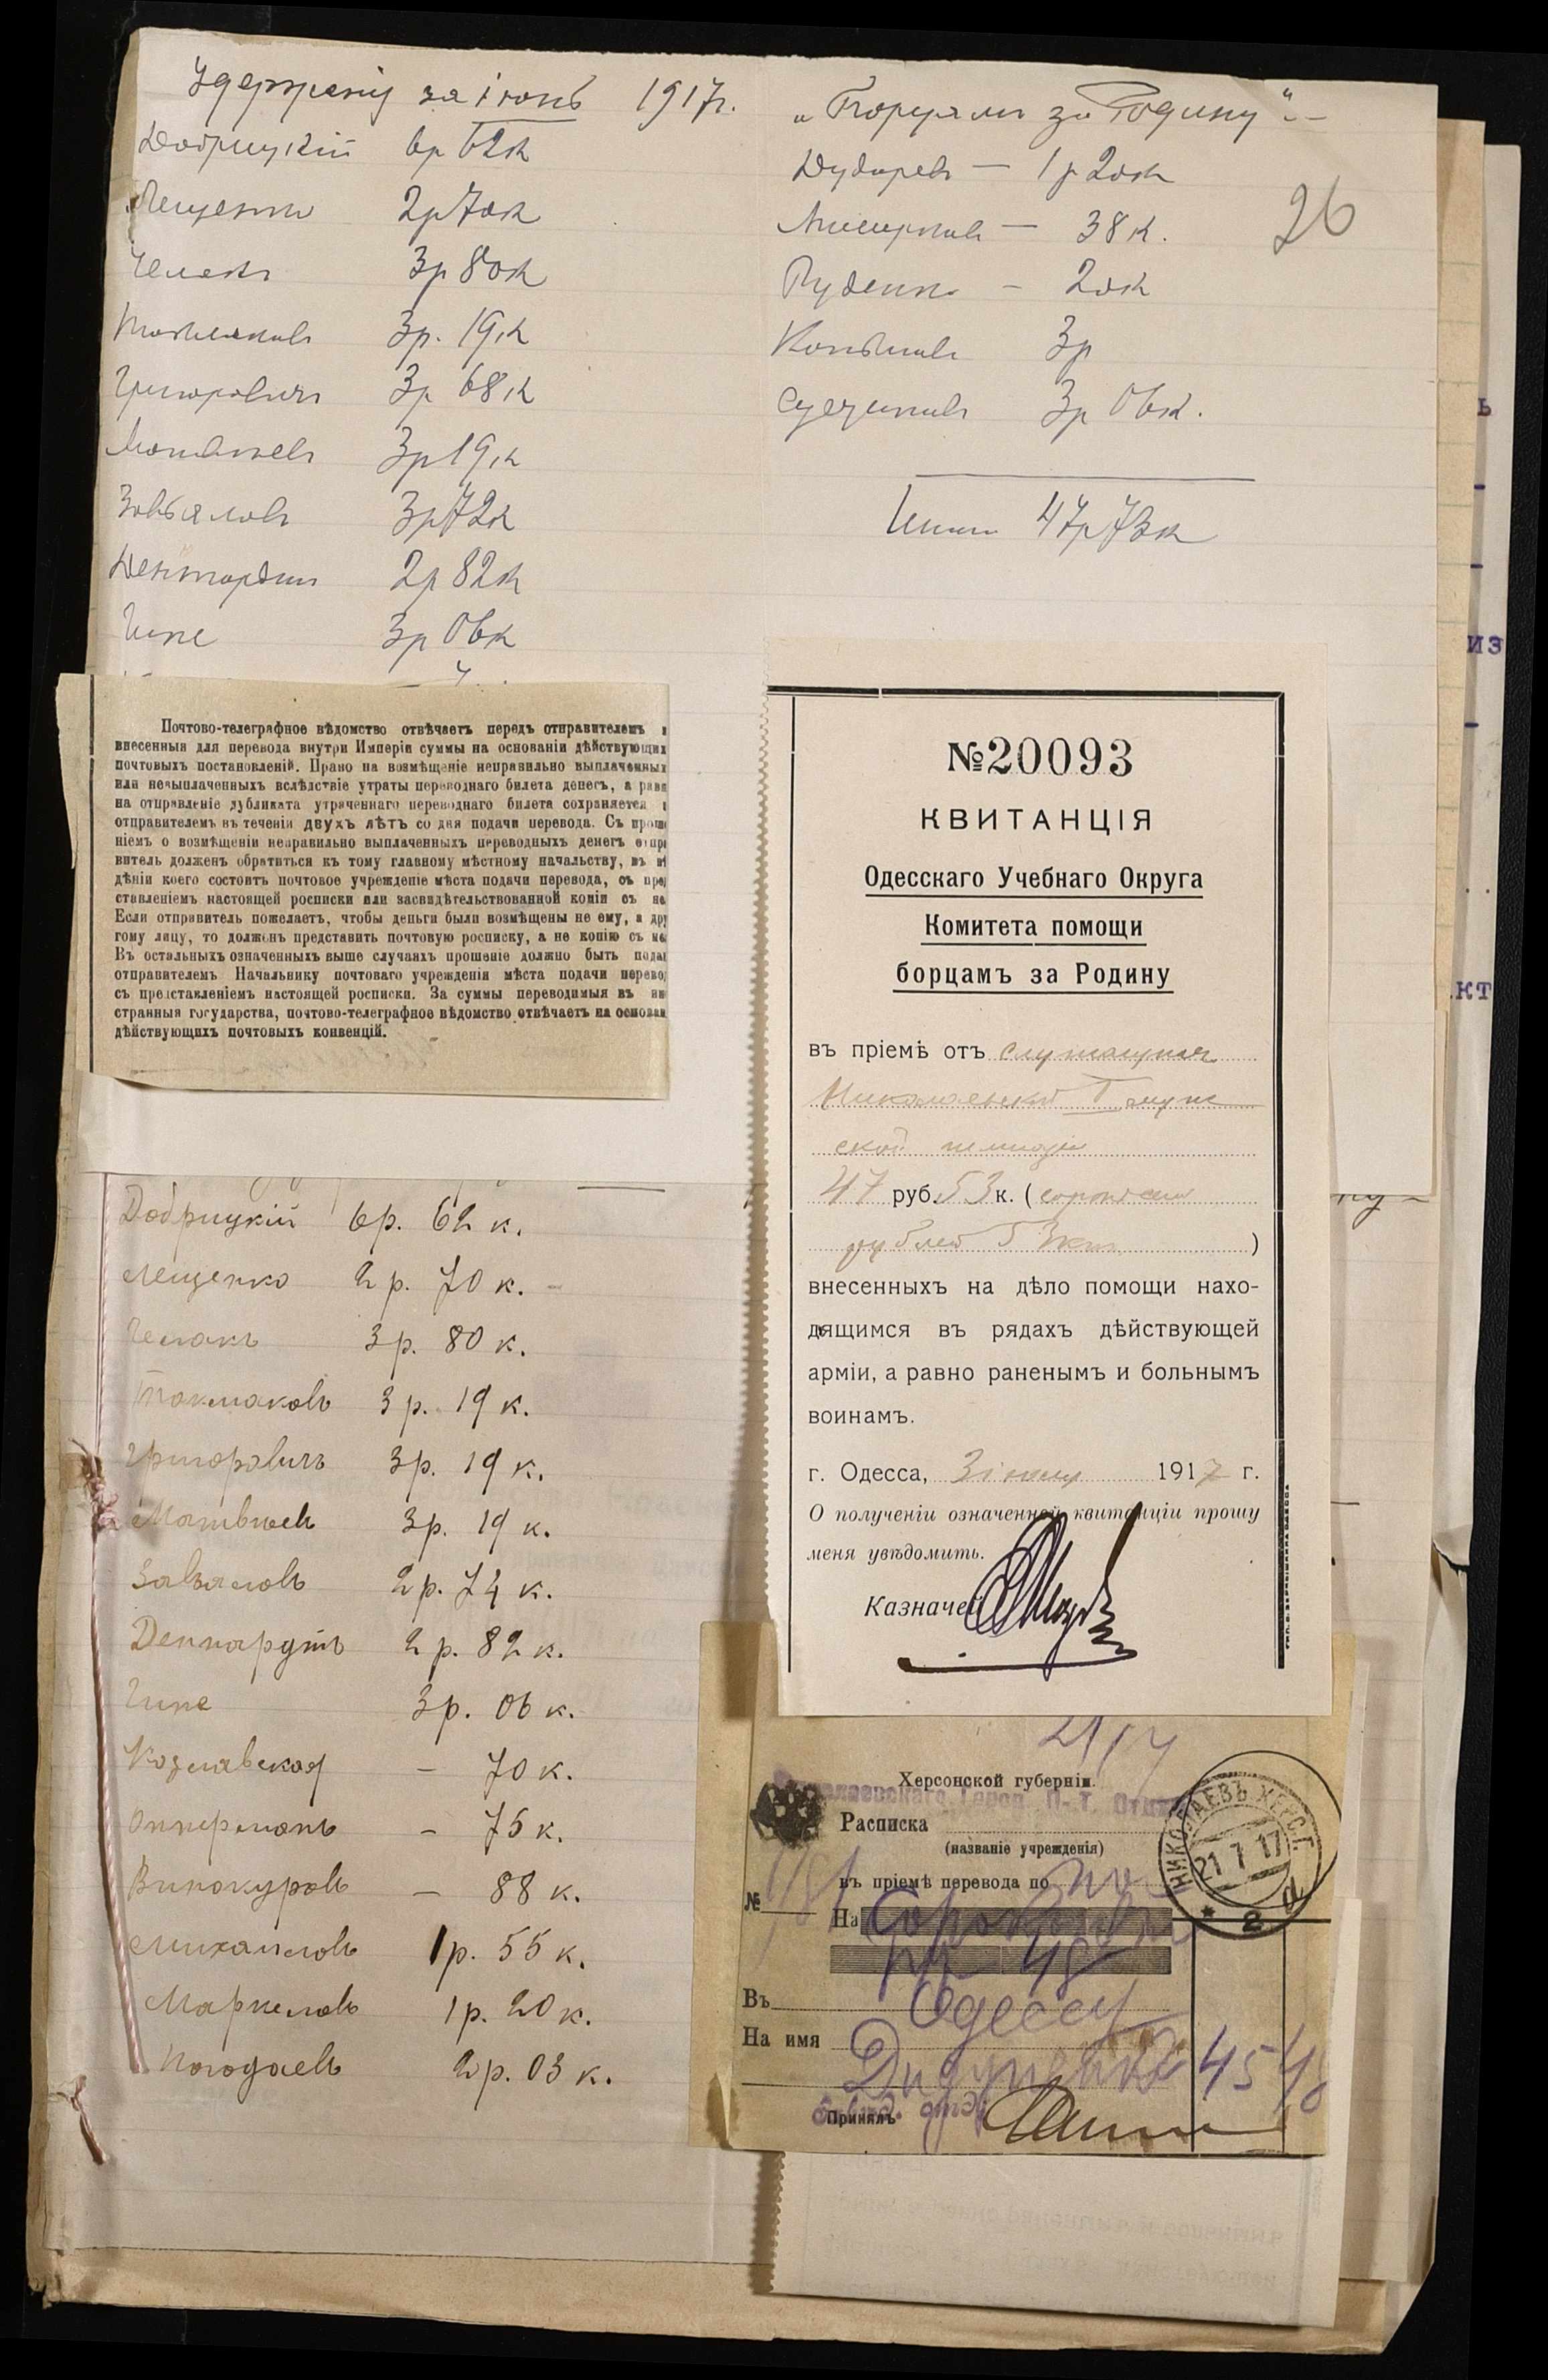 Удержано за іюнь 1917г.
Добрицкій 6р 62к
Лещенко 2р 70к
Челакъ 3р 80к
Токмаковъ 3р. 19к
Григоровичъ 3р 68к
Матвѣевъ 3р 19к
Завьяловъ 3р 72к
2р 82к
Гипе 3р 06к
„Борцамъ за Родину“
Дударевъ — 1р 20к
— 38к.
Руденко — 20к
3р
3р 06к.
Итого 47р 73к
26
Почтово-телеграфное вѣдомство отвѣчаетъ передъ отправителемъ
внесенныя для перевода внутри Имперіи суммы на основаніи дѣйствующих
почтовыхъ постановленій. Право на возмѣщеніе неправильно выплаченных
или невыплаченныхъ вслѣдствіе утраты переводнаго билета денегъ, а равн
на отправленіе дубликата утраченнаго переводнаго билета сохраняется
отправителемъ въ теченіи двухъ лѣтъ со дня подачи перевода. Съ проше
ніемъ о возмѣщеніи неправильно выплаченныхъ переводныхъ денегъ отпр
витель долженъ обратиться къ тому главному мѣстному начальству, въ вѣ
дѣніи коего состоитъ почтовое учрежденіе мѣста подачи перевода, съ пред
ставленіемъ настоящей росписки или засвидѣтельствованной копіи съ не
Если отправитель пожелаетъ, чтобы деньги были возмѣщены не ему, а дру
гому лицу, то долженъ представить почтовую росписку, а не копію съ не
Въ остальныхъ означенныхъ выше случаяхъ прошеніе должно быть пода
отправителемъ Начальнику почтоваго учрежденія мѣста подачи перевод
съ представленіемъ настоящей росписки. За суммы переводимыя въ ин
странныя государства, почтово-телеграфное вѣдомство отвѣчаетъ на основан
дѣйствующихъ почтовыхъ конвенцій.
№20093
КВИТАНЦІЯ
Одесскаго Учебнаго Округа
Комитета помощи
борцамъ за Родину
въ пріемѣ отъ служащихъ
Николаевской I мужс
ской гимназіи
47 руб. 53 к. (сорокъ семь
рублей 53 коп.)
внесенныхъ на дѣло помощи нахо-
дящимся въ рядахъ дѣйствующей
арміи, а равно раненымъ и больнымъ
воинамъ.
г. Одесса, 3 іюня 1917 г.
О полученіи означенной квитанціи прошу
меня увѣдомить.
Казначей
Добрицкій 6р. 62 к.
Лещенко 2 р. 70 к.
Челакъ 3р. 80 к.
Токмаковъ 3р. 19 к.
Григоровичъ 3р. 19 к.
Матвѣевъ 3р. 19 к.
Завьяловъ 2р. 74 к.
Денгардтъ 2 р. 82 к.
Гипе 3р. 06 к.
Козлавская — 70 к.
Опперманъ — 75 к.
Винокуровъ — 88 к.
Михайловъ 1р. 55 к.
Маркеловъ 1р. 20 к.
Погодаевъ 2р. 03 к.
21/7
Херсонской губерніи.
Расписка
(названіе учрежденія)
въ пріемѣ перевода по
№
На Сорокъ пять
рк 48
Въ Одессу
На имя
45 48
Принялъ
НИКОЛАЕВЪ ХЕРС.Г.
21 7 17
из
кт